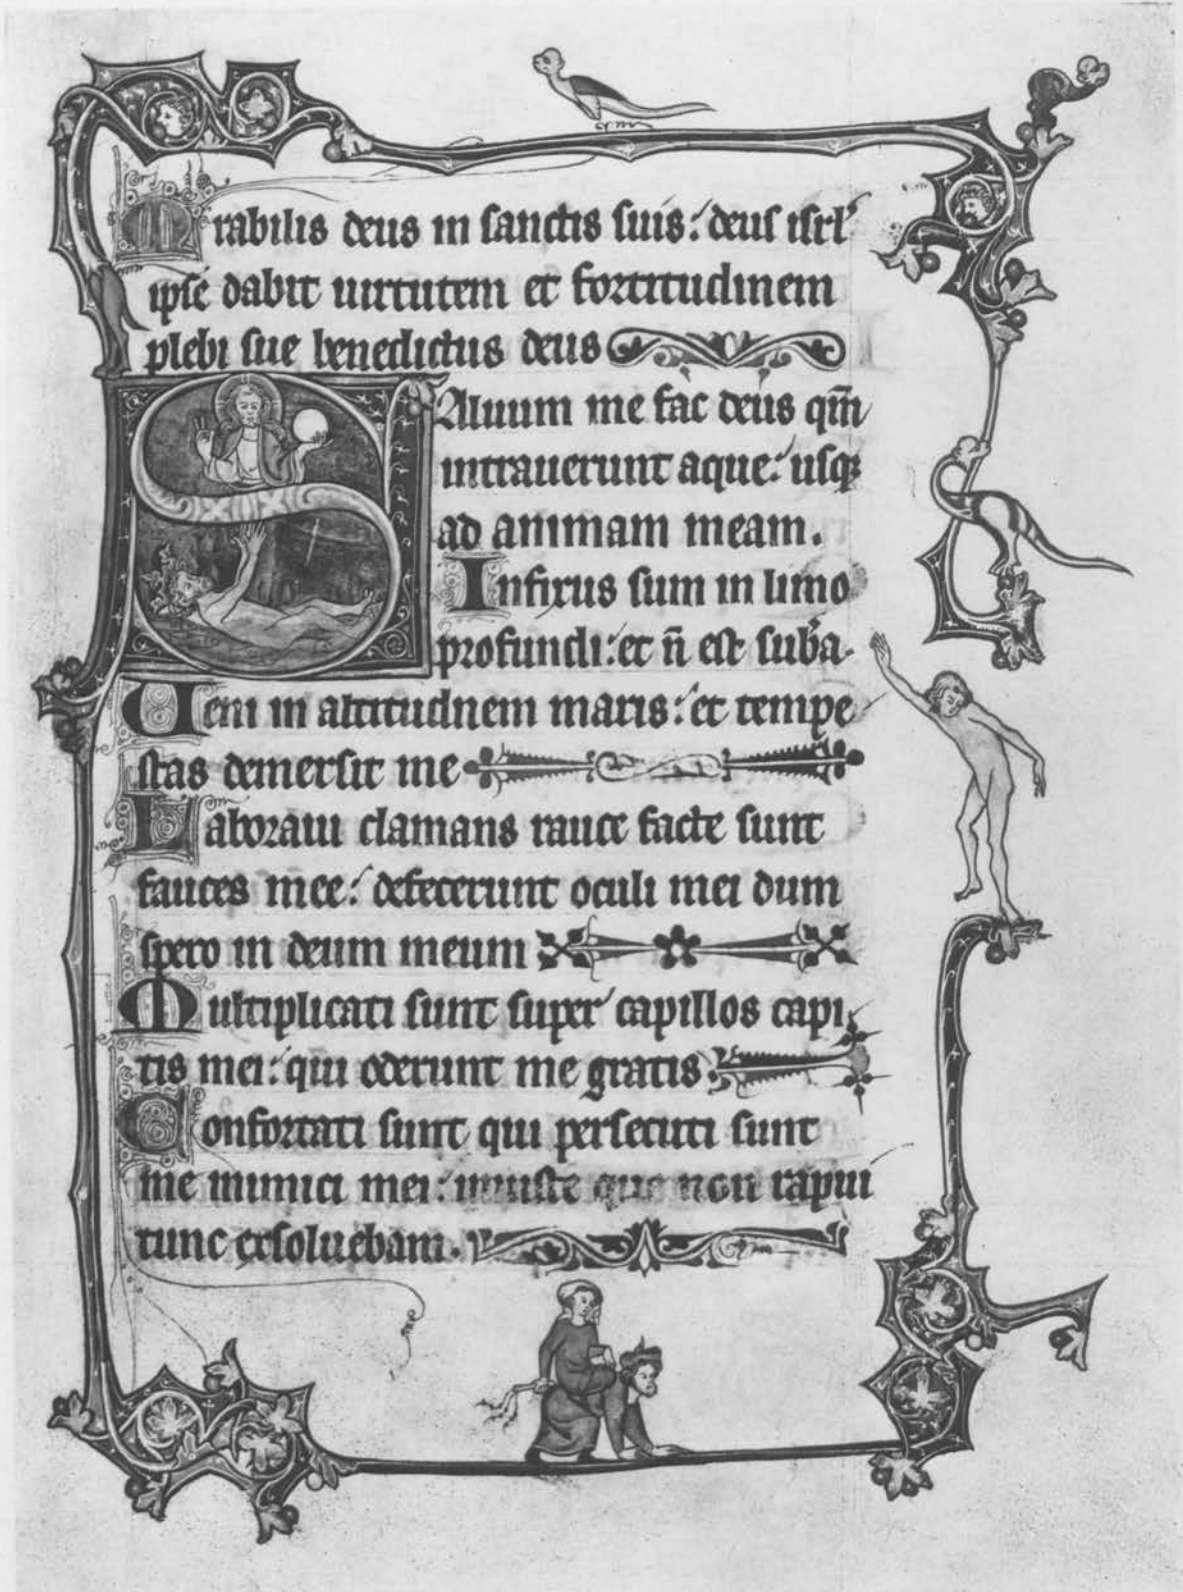 Mirabilis deus in sanctis suis: deus isrl'
ipse dabit uirtutem et fortitudinem
plebi sue benedictus deus
Saluum me fac deus qm̄
intrauerunt aque: usqꝫ
ad animam meam.
Infixus sum in limo
profundi: et ñ est sub'a.
Ueni in altitudinem maris: et tempe
stas demersit me
Laboraui clamans rauce facte sunt
fauces mee: defecerunt oculi mei dum
spero in deum meum
Multiplicati sunt super capillos capi
tis mei: qui oderunt me gratis
Confortati sunt qui persecuti sunt
me inimici mei: iniuste que non rapui
tunc exsoluebam.